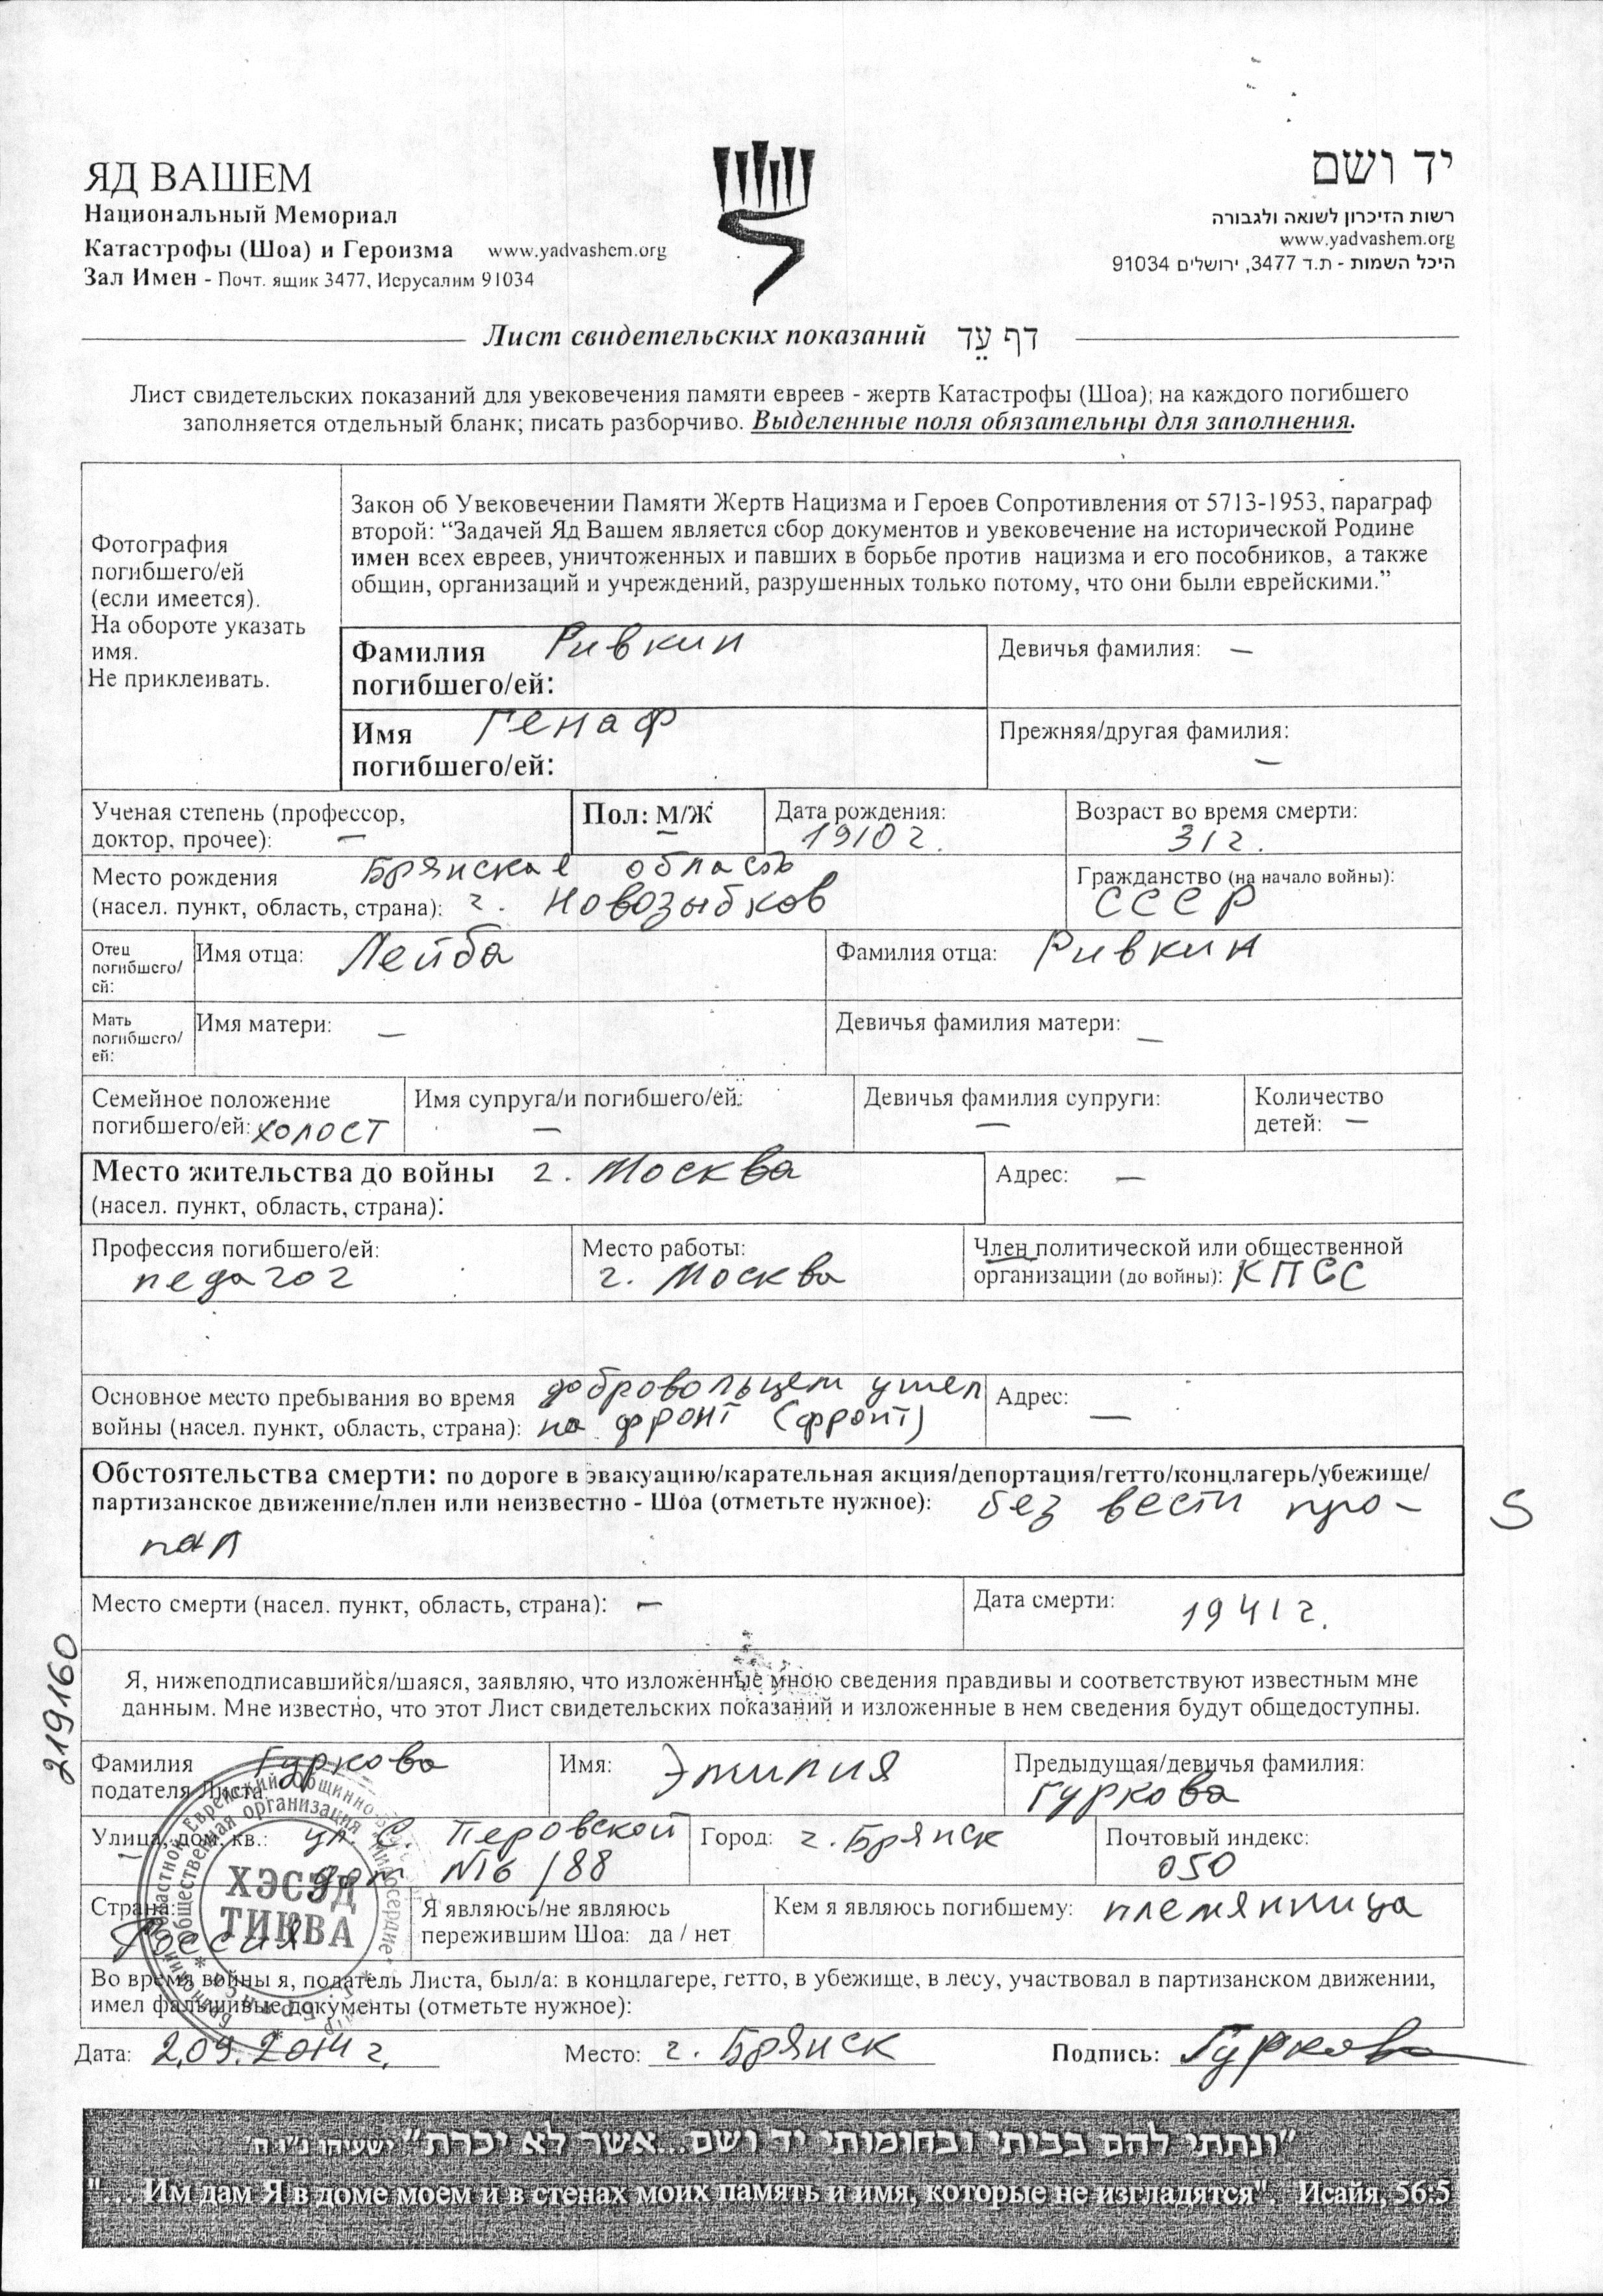 ЯД ВАШЕМ
Национальный Мемориал
Катастрофы (Шоа) и Героизма www.yadvashem.org
Зал Имен - Почт. ящик 3477, Иерусалим 91034
יד ושם
רשות הזיכרון לשואה ולגבורה
www.yadvashem.org
היכל השמות - ת.ד 3477, ירושלים 91034
Лист свидетельских показаний דף עֵד
Лист свидетельских показаний для увековечения памяти евреев - жертв Катастрофы (Шоа); на каждого погибшего
заполняется отдельный бланк; писать разборчиво. Выделенные поля обязательны для заполнения.
Фотография
погибшего/ей
(если имеется).
На обороте указать
имя.
Не приклеивать.
Закон об Увековечении Памяти Жертв Нацизма и Героев Сопротивления от 5713-1953, параграф
второй: “Задачей Яд Вашем является сбор документов и увековечение на исторической Родине
имен всех евреев, уничтоженных и павших в борьбе против нацизма и его пособников, а также
общин, организаций и учреждений, разрушенных только потому, что они были еврейскими.”
Фамилия Ривкин
погибшего/ей:
Девичья фамилия: —
Имя Генаф
погибшего/ей:
Прежняя/другая фамилия:
—
Ученая степень (профессор,
доктор, прочее): —
Пол: М/Ж
Дата рождения:
1910 г.
Возраст во время смерти:
31 г.
Место рождения Брянская область
(насел. пункт, область, страна): г. Новозыбков
Гражданство (на начало войны):
СССР
Отец
погибшего/
ей:
Имя отца: Лейба
Фамилия отца: Ривкин
Мать
погибшего/
ей:
Имя матери: —
Девичья фамилия матери: —
Семейное положение
погибшего/ей: холост
Имя супруга/и погибшего/ей:
—
Девичья фамилия супруги:
—
Количество
детей: —
Место жительства до войны г. Москва
(насел. пункт, область, страна):
Адрес: —
Профессия погибшего/ей:
педагог
Место работы:
г. Москва
Член политической или общественной
организации (до войны): КПСС
Основное место пребывания во время добровольцем ушел
войны (насел. пункт, область, страна): на фронт (фронт)
Адрес:
—
Обстоятельства смерти: по дороге в эвакуацию/карательная акция/депортация/гетто/концлагерь/убежище/
партизанское движение/плен или неизвестно - Шоа (отметьте нужное): без вести про-
пал
S
Место смерти (насел. пункт, область, страна): —
Дата смерти: 1941 г.
219160
Я, нижеподписавшийся/шаяся, заявляю, что изложенные мною сведения правдивы и соответствуют известным мне
данным. Мне известно, что этот Лист свидетельских показаний и изложенные в нем сведения будут общедоступны.
Фамилия Гуркова
подателя Листа:
Имя: Эмилия
Предыдущая/девичья фамилия:
Гуркова
Улица, дом, кв.: ул. С. Перовской
дом №6/88
Город: г. Брянск
Почтовый индекс:
050
Страна:
Россия
Я являюсь/не являюсь
пережившим Шоа: да / нет
Кем я являюсь погибшему: племянница
ХЭСЭД
ТИКВА
Во время войны я, податель Листа, был/а: в концлагере, гетто, в убежище, в лесу, участвовал в партизанском движении,
имел фальшивые документы (отметьте нужное):
Дата: 2.09.2014 г.
Место: г. Брянск
Подпись: Гуркова
"ונתתי להם בביתי ובחומותי יד ושם...אשר לא יכרת" ישעיהו נ"ו ה'
"... Им дам Я в доме моем и в стенах моих память и имя, которые не изгладятся". Исайя, 56:5